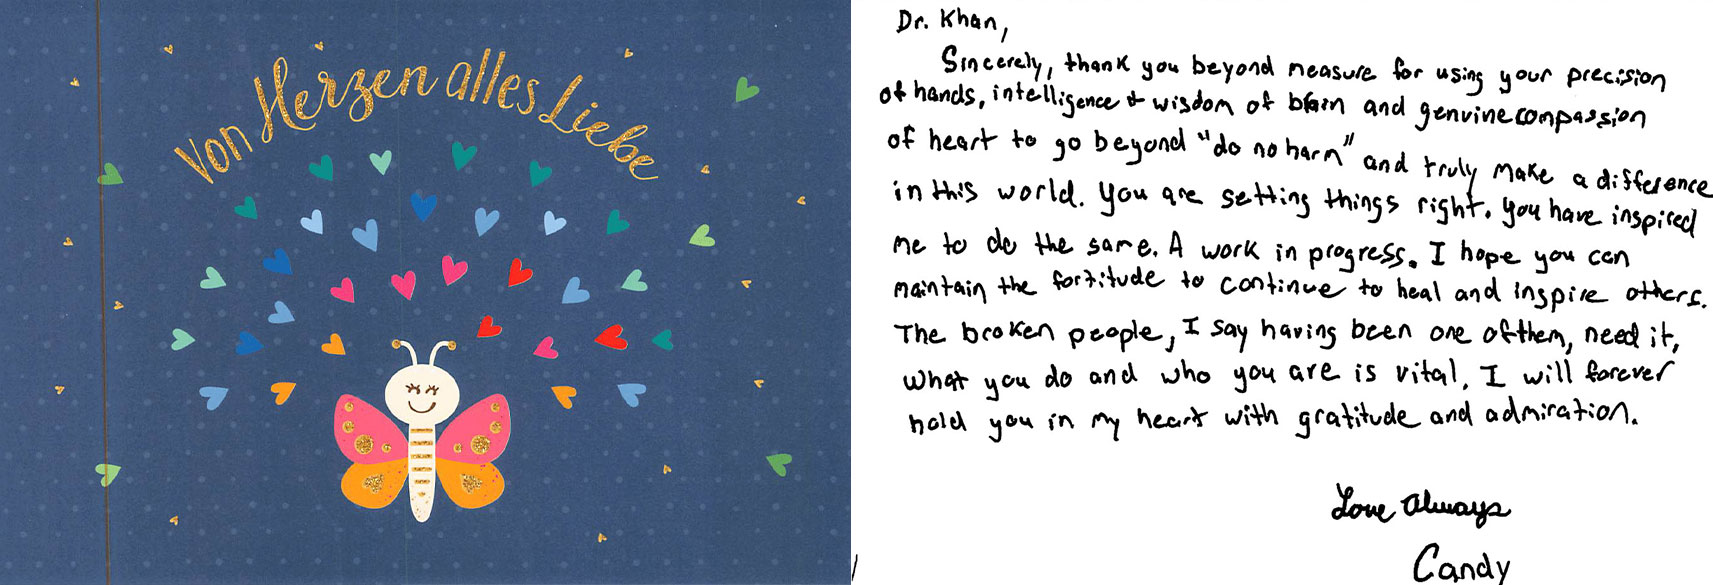 Von Herzen alles Liebe
Dr. Khan,
Sincerely, thank you beyond measure for using your precision
of hands, intelligence & wisdom of brain and genuine compassion
of heart to go beyond "do no harm" and truly make a difference
in this world. You are setting things right. You have inspired
me to do the same. A work in progress. I hope you can
maintain the fortitude to continue to heal and inspire others.
The broken people, I say having been one of them, need it.
What you do and who you are is vital. I will forever
hold you in my heart with gratitude and admiration.
Love Always
Candy